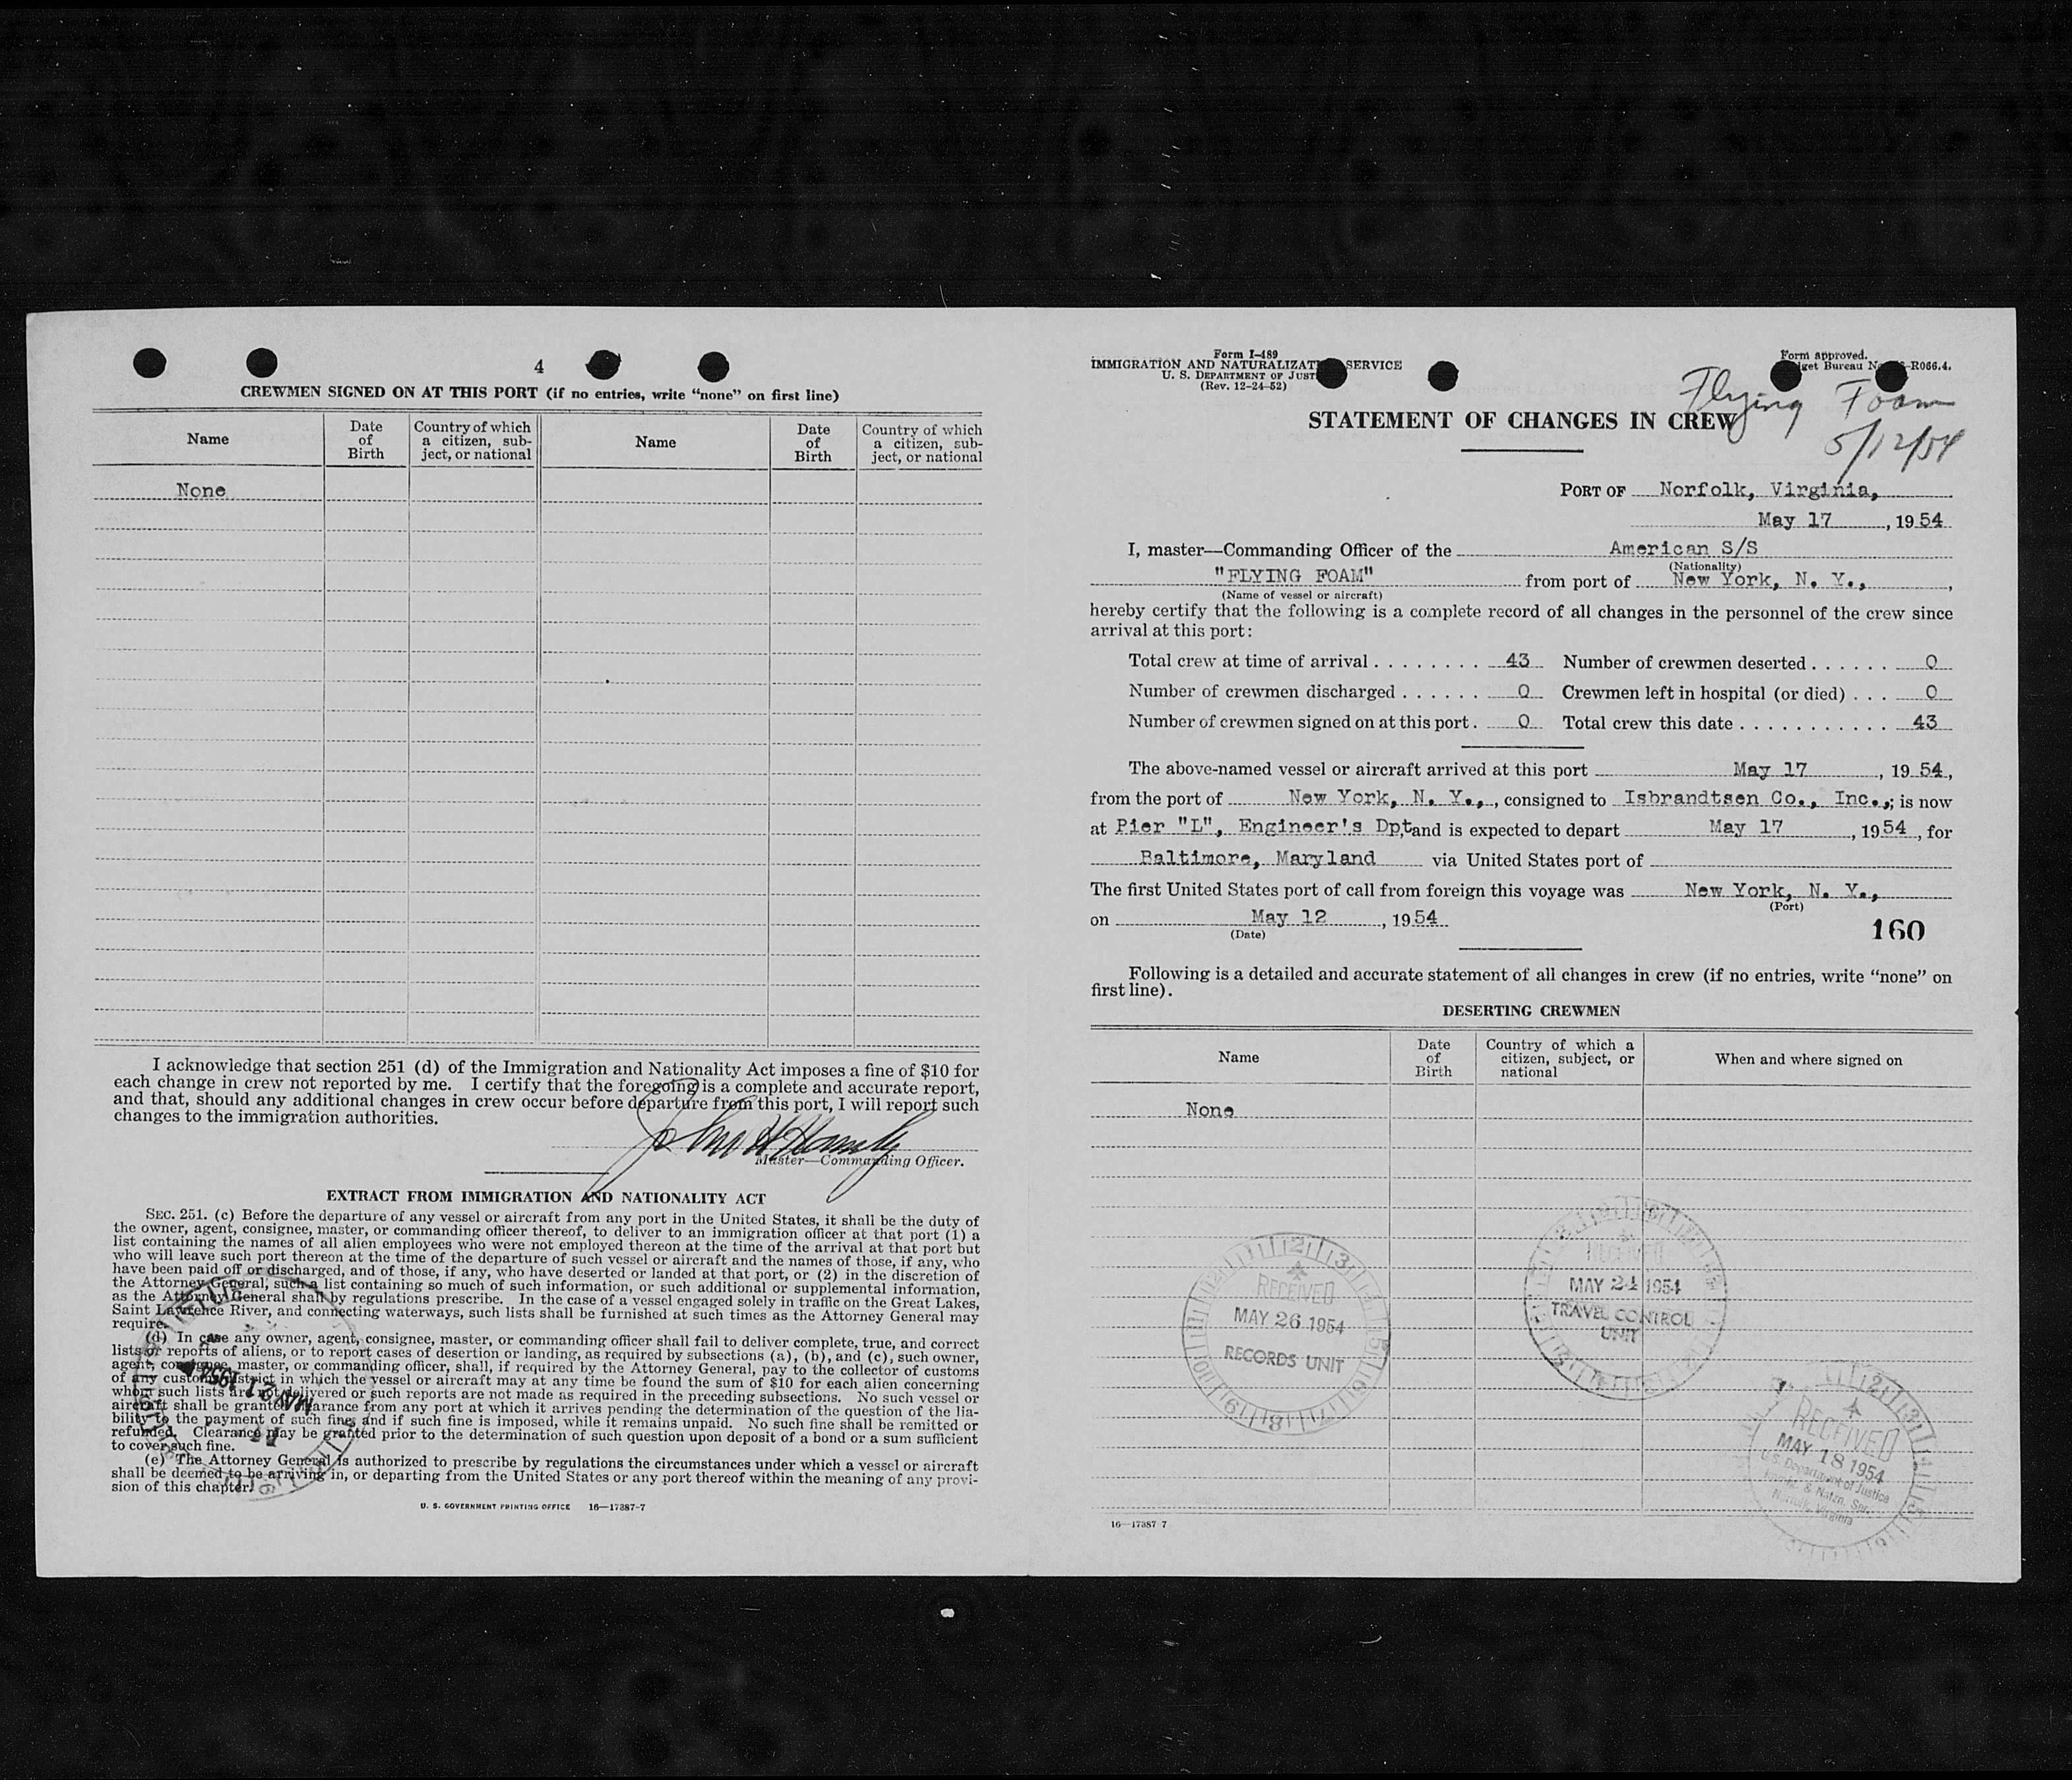 4
CREWMEN SIGNED ON AT THIS PORT (if no entries, write “none” on first line)
Name Date of Birth Country of which a citizen, subject, or national Name Date of Birth Country of which a citizen, subject, or national
None
I acknowledge that section 251 (d) of the Immigration and Nationality Act imposes a fine of $10 for
each change in crew not reported by me. I certify that the foregoing is a complete and accurate report,
and that, should any additional changes in crew occur before departure from this port, I will report such
changes to the immigration authorities.
Master—Commanding Officer.
EXTRACT FROM IMMIGRATION AND NATIONALITY ACT
SEC. 251. (c) Before the departure of any vessel or aircraft from any port in the United States, it shall be the duty of
the owner, agent, consignee, master, or commanding officer thereof, to deliver to an immigration officer at that port (1) a
list containing the names of all alien employees who were not employed thereon at the time of the arrival at that port but
who will leave such port thereon at the time of the departure of such vessel or aircraft and the names of those, if any, who
have been paid off or discharged, and of those, if any, who have deserted or landed at that port, or (2) in the discretion of
the Attorney General, such a list containing so much of such information, or such additional or supplemental information,
as the Attorney General shall by regulations prescribe. In the case of a vessel engaged solely in traffic on the Great Lakes,
Saint Lawrence River, and connecting waterways, such lists shall be furnished at such times as the Attorney General may
require.
(d) In case any owner, agent, consignee, master, or commanding officer shall fail to deliver complete, true, and correct
lists or reports of aliens, or to report cases of desertion or landing, as required by subsections (a), (b), and (c), such owner,
agent, consignee, master, or commanding officer, shall, if required by the Attorney General, pay to the collector of customs
of any customs district in which the vessel or aircraft may at any time be found the sum of $10 for each alien concerning
whom such lists are not delivered or such reports are not made as required in the preceding subsections. No such vessel or
aircraft shall be granted clearance from any port at which it arrives pending the determination of the question of the lia-
bility to the payment of such fine, and if such fine is imposed, while it remains unpaid. No such fine shall be remitted or
refunded. Clearance may be granted prior to the determination of such question upon deposit of a bond or a sum sufficient
to cover such fine.
(e) The Attorney General is authorized to prescribe by regulations the circumstances under which a vessel or aircraft
shall be deemed to be arriving in, or departing from the United States or any port thereof within the meaning of any provi-
sion of this chapter.
MAY 21 1954
U. S. GOVERNMENT PRINTING OFFICE 16—17387-7
Form I-489
IMMIGRATION AND NATURALIZAT SERVICE
U. S. DEPARTMENT OF JUST
(Rev. 12-24-52)
Form approved.
get Bureau N -R066.4.
Flying Foam
5/12/54
STATEMENT OF CHANGES IN CREW
PORT OF Norfolk, Virginia,
May 17, 1954
I, master—Commanding Officer of the American S/S
(Nationality)
"FLYING FOAM" from port of New York, N. Y.,,
(Name of vessel or aircraft)
hereby certify that the following is a complete record of all changes in the personnel of the crew since
arrival at this port:
Total crew at time of arrival . . . . . . . . 43 Number of crewmen deserted . . . . . . 0
Number of crewmen discharged . . . . . . 0 Crewmen left in hospital (or died) . . . 0
Number of crewmen signed on at this port . 0 Total crew this date . . . . . . . . . . . 43
The above-named vessel or aircraft arrived at this port May 17, 1954,
from the port of New York, N. Y.,, consigned to Isbrandtsen Co., Inc.,; is now
at Pier "L", Engineer's Dpt, and is expected to depart May 17, 1954, for
Baltimore, Maryland via United States port of
The first United States port of call from foreign this voyage was New York, N. Y.,
(Port)
on May 12, 1954
(Date)
160
Following is a detailed and accurate statement of all changes in crew (if no entries, write “none” on
first line).
DESERTING CREWMEN
Name Date of Birth Country of which a citizen, subject, or national When and where signed on
None
RECEIVED
MAY 26 1954
RECORDS UNIT
RECEIVED
MAY 24 1954
TRAVEL CONTROL
UNIT
RECEIVED
MAY 18 1954
U. S. Department of Justice
Immig. & Natzn. Ser.
Norfolk, Virginia
16—17387-7